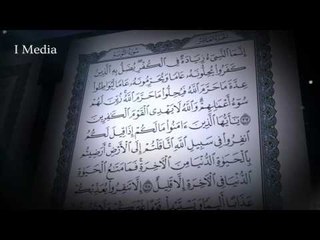 I Media
إِنَّمَا ٱلنَّسِىٓءُ زِيَادَةٌ فِى ٱلْكُفْرِ يُضَلُّ بِهِ ٱلَّذِينَ
كَفَرُوا۟ يُحِلُّونَهُۥ عَامًا وَيُحَرِّمُونَهُۥ عَامًا لِّيُوَاطِـُٔوا۟
عِدَّةَ مَا حَرَّمَ ٱللَّهُ فَيُحِلُّوا۟ مَا حَرَّمَ ٱللَّهُ زُيِّنَ لَهُمْ
سُوٓءُ أَعْمَٰلِهِمْ وَٱللَّهُ لَا يَهْدِى ٱلْقَوْمَ ٱلْكَٰفِرِينَ
يَٰٓأَيُّهَا ٱلَّذِينَ ءَامَنُوا۟ مَا لَكُمْ إِذَا قِيلَ لَكُمُ
ٱنفِرُوا۟ فِى سَبِيلِ ٱللَّهِ ٱثَّاقَلْتُمْ إِلَى ٱلْأَرْضِ أَرَضِيتُم
بِٱلْحَيَوٰةِ ٱلدُّنْيَا مِنَ ٱلْءَاخِرَةِ فَمَا مَتَٰعُ ٱلْحَيَوٰةِ
ٱلدُّنْيَا فِى ٱلْءَاخِرَةِ إِلَّا قَلِيلٌ ٣٨ إِلَّا تَنفِرُوا۟ يُعَذِّبْكُمْ
عَذَابًا أَلِيمًا